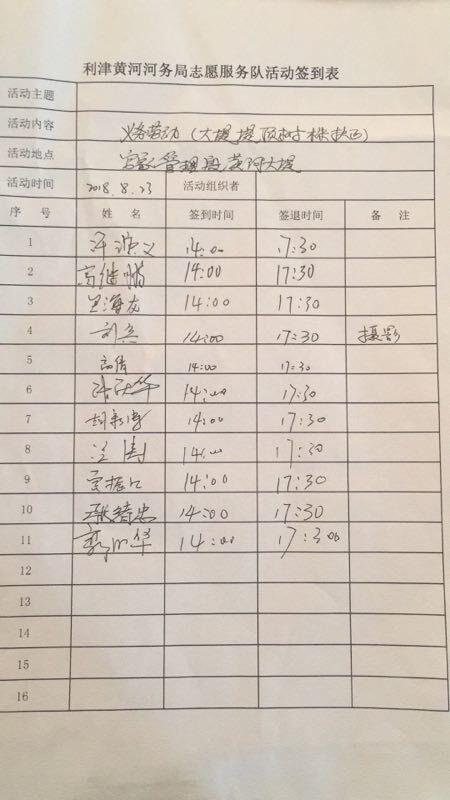 利津黄河河务局志愿服务队活动签到表
活动主题
活动内容 义务劳动（大堤堤顶树株扶正）
活动地点 管理段黄河大堤
活动时间 2018.8.23 活动组织者
序 号 姓 名 签到时间 签退时间 备 注
1 14:00 17:30
2 14:00 17:30
3 海龙 14:00 17:30
4 刘兵 14:00 17:30 摄影
5 高倩 14:00 17:30
6 14:00 17:30
7 胡新涛 14:00 17:30
8 14:00 17:30
9 14:00 17:30
10 14:00 17:30
11 14:00 17:30
12
13
14
15
16